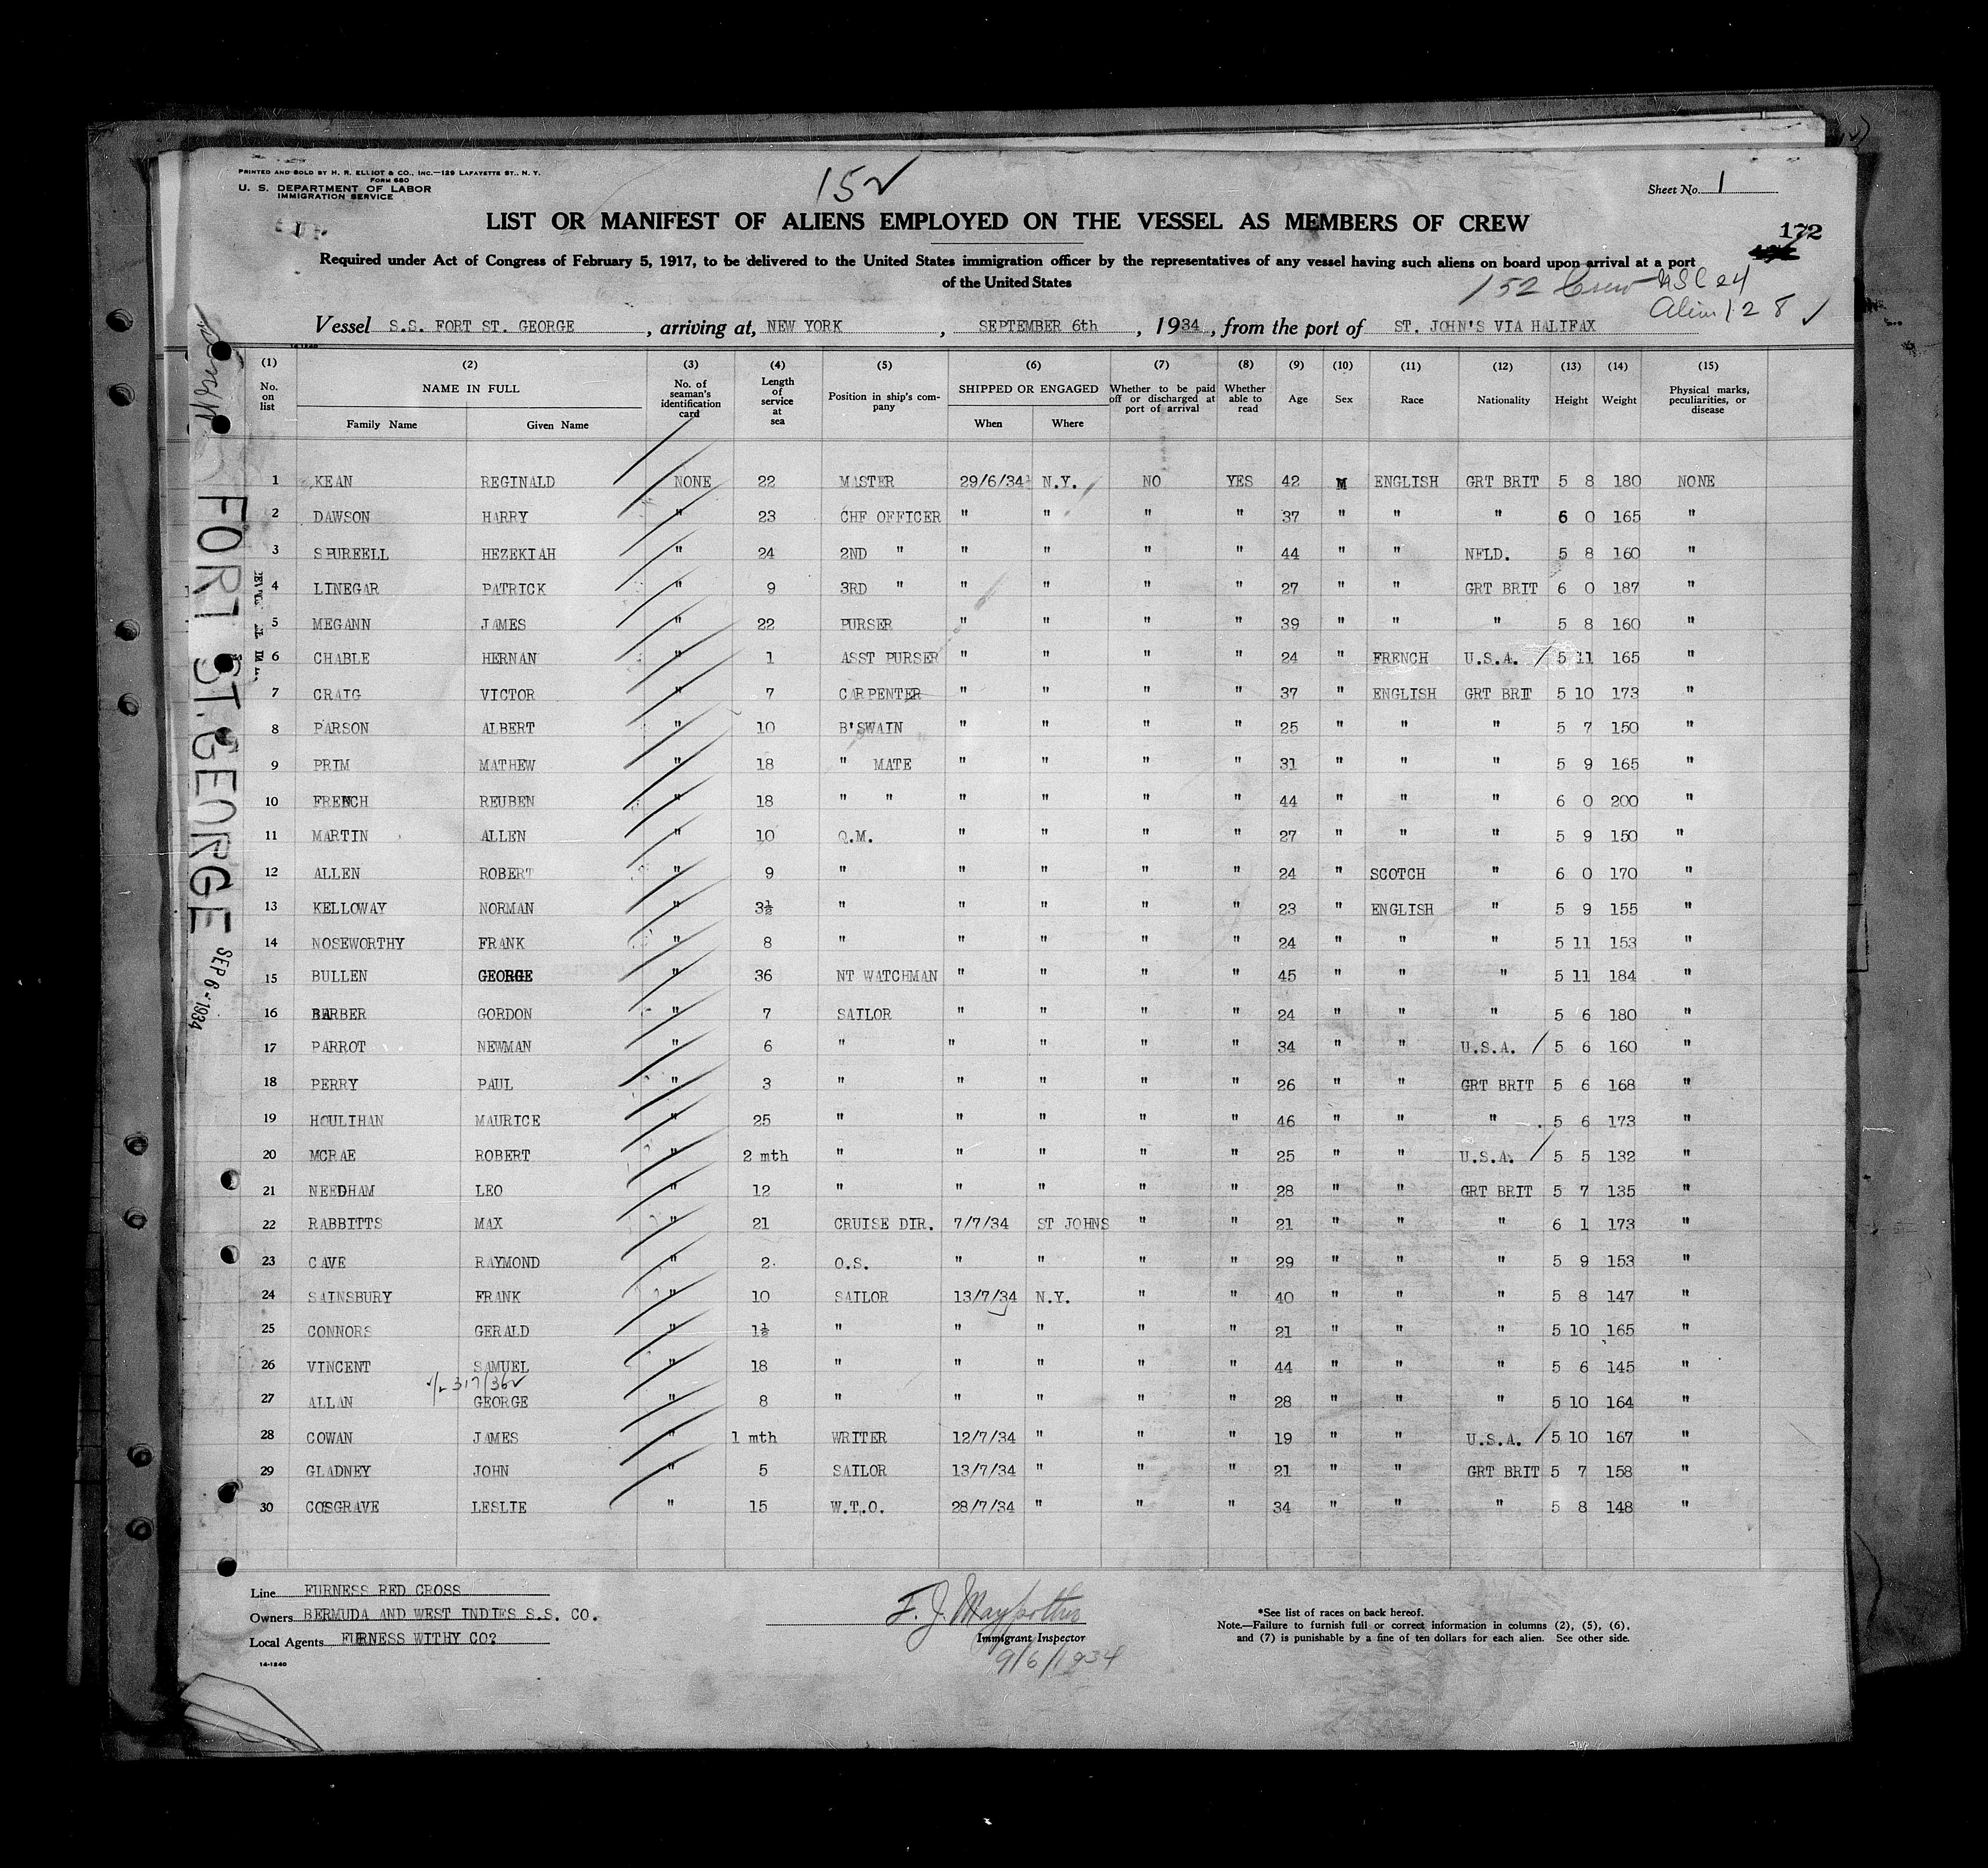 PRINTED AND SOLD BY H. R. ELLIOT & CO., INC.—129 LAFAYETTE ST., N. Y.
FORM 680
U. S. DEPARTMENT OF LABOR
IMMIGRATION SERVICE
152
Sheet No. 1
LIST OR MANIFEST OF ALIENS EMPLOYED ON THE VESSEL AS MEMBERS OF CREW
172
Required under Act of Congress of February 5, 1917, to be delivered to the United States immigration officer by the representatives of any vessel having such aliens on board upon arrival at a port
of the United States
152 Crew USC 24
Alien 128 ✓
Vessel S.S. FORT ST. GEORGE, arriving at, NEW YORK, SEPTEMBER 6th, 1934, from the port of ST. JOHN'S VIA HALIFAX
14-1240
(1) (2) (3) (4) (5) (6) (7) (8) (9) (10) (11) (12) (13) (14) (15)
No. on list NAME IN FULL Family Name Given Name No. of seaman's identification card Length of service at sea Position in ship's company SHIPPED OR ENGAGED When Where Whether to be paid off or discharged at port of arrival Whether able to read Age Sex Race Nationality Height Weight Physical marks, peculiarities, or disease
1 KEAN REGINALD NONE 22 MASTER 29/6/34 N.Y. NO YES 42 M ENGLISH GRT BRIT 5 8 180 NONE
2 DAWSON HARRY " 23 CHF OFFICER " " " " 37 " " " 6 0 165 "
3 SPURRELL HEZEKIAH " 24 2ND " " " " " 44 " " NFLD. 5 8 160 "
4 LINEGAR PATRICK " 9 3RD " " " " " 27 " " GRT BRIT 6 0 187 "
5 MEGANN JAMES " 22 PURSER " " " " 39 " " " 5 8 160 "
6 CHABLE HERNAN " 1 ASST PURSER " " " " 24 " FRENCH U.S.A. / 5 11 165 "
7 CRAIG VICTOR " 7 CARPENTER " " " " 37 " ENGLISH GRT BRIT 5 10 173 "
8 PARSON ALBERT " 10 B'SWAIN " " " " 25 " " " 5 7 150 "
9 PRIM MATHEW " 18 " MATE " " " " 31 " " " 5 9 165 "
10 FRENCH REUBEN " 18 " " " " " " 44 " " " 6 0 200 "
11 MARTIN ALLEN " 10 Q.M. " " " " 27 " " " 5 9 150 "
12 ALLEN ROBERT " 9 " " " " " 24 " SCOTCH " 6 0 170 "
13 KELLOWAY NORMAN " 3½ " " " " " 23 " ENGLISH " 5 9 155 "
14 NOSEWORTHY FRANK " 8 " " " " " 24 " " " 5 11 153 "
15 BULLEN GEORGE " 36 NT WATCHMAN " " " " 45 " " " 5 11 184 "
16 BARBER GORDON " 7 SAILOR " " " " 24 " " " 5 6 180 "
17 PARROT NEWMAN " 6 " " " " " 34 " " U.S.A. / 5 6 160 "
18 PERRY PAUL " 3 " " " " " 26 " " GRT BRIT 5 6 168 "
19 HOULIHAN MAURICE " 25 " " " " " 46 " " " 5 6 173 "
20 MCRAE ROBERT " 2 mth " " " " " 25 " " U.S.A. / 5 5 132 "
21 NEEDHAM LEO " 12 " " " " " 28 " " GRT BRIT 5 7 135 "
22 RABBITTS MAX " 21 CRUISE DIR. 7/7/34 ST JOHNS " " 21 " " " 6 1 173 "
23 CAVE RAYMOND " 2 O.S. " " " " 29 " " " 5 9 153 "
24 SAINSBURY FRANK " 10 SAILOR 13/7/34 N.Y. " " 40 " " " 5 8 147 "
25 CONNORS GERALD " 1½ " " " " " 21 " " " 5 10 165 "
26 VINCENT SAMUEL " 18 " " " " " 44 " " " 5 6 145 "
317/36 ✓
27 ALLAN GEORGE " 8 " " " " " 28 " " " 5 10 164 "
28 COWAN JAMES " 1 mth WRITER 12/7/34 " " " 19 " " U.S.A. / 5 10 167 "
29 GLADNEY JOHN " 5 SAILOR 13/7/34 " " " 21 " " GRT BRIT 5 7 158 "
30 COSGRAVE LESLIE " 15 W.T.O. 28/7/34 " " " 34 " " " 5 8 148 "
FORT ST. GEORGE SEP 6-1934
Line FURNESS RED CROSS
Owners BERMUDA AND WEST INDIES S.S. CO.
Local Agents FURNESS WITHY CO?
14-1240
F. J.
Immigrant Inspector
9/6/1934
*See list of races on back hereof.
Note.—Failure to furnish full or correct information in columns (2), (5), (6),
and (7) is punishable by a fine of ten dollars for each alien. See other side.